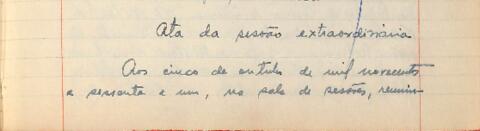 Ata da sessão extraordinária
Aos cinco de outubro de mil novecentos
e sessenta e um, na sala de sessões, reuniu-